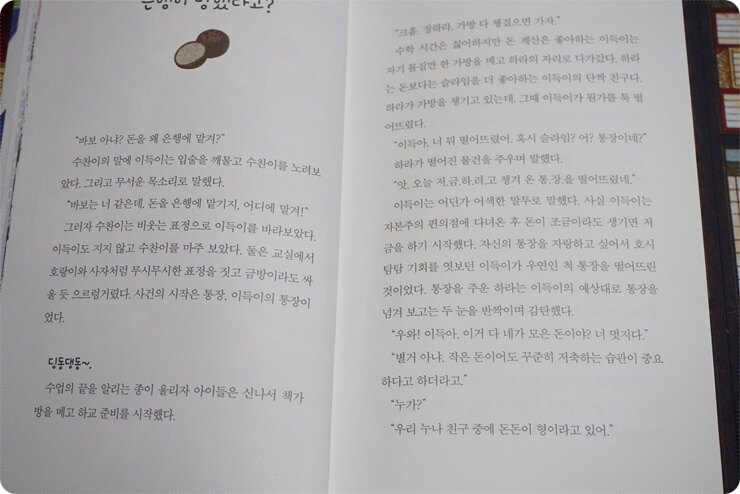 은행이 망했다고?
“바보 아냐? 돈을 왜 은행에 맡겨?”
수찬이의 말에 이득이는 입술을 깨물고 수찬이를 노려보
았다. 그리고 무서운 목소리로 말했다.
“바보는 너 같은데. 돈을 은행에 맡기지, 어디에 맡겨!”
그러자 수찬이는 비웃는 표정으로 이득이를 바라보았다.
이득이도 지지 않고 수찬이를 마주 보았다. 둘은 교실에서
호랑이와 사자처럼 무시무시한 표정을 짓고 금방이라도 싸
울 듯 으르렁거렸다. 사건의 시작은 통장, 이득이의 통장이
었다.
딩동댕동~.
수업의 끝을 알리는 종이 울리자 아이들은 신나서 책가
방을 메고 하교 준비를 시작했다.
“크흠. 정하라, 가방 다 챙겼으면 가자.”
수학 시간은 싫어하지만 돈 계산은 좋아하는 이득이는
자기 몸집만 한 가방을 메고 하라의 자리로 다가갔다. 하라
는 돈보다는 슬라임을 더 좋아하는 이득이의 단짝 친구다.
하라가 가방을 챙기고 있는데, 그때 이득이가 뭔가를 툭 떨
어뜨렸다.
“이득아, 너 뭐 떨어뜨렸어. 혹시 슬라임? 어? 통장이네?”
하라가 떨어진 물건을 주우며 말했다.
“앗, 오늘 저.금.하.려.고 챙겨 온 통.장.을 떨어뜨렸네.”
이득이는 어딘가 어색한 말투로 말했다. 사실 이득이는
자본주의 편의점에 다녀온 후 돈이 조금이라도 생기면 저
금을 하기 시작했다. 자신의 통장을 자랑하고 싶어서 호시
탐탐 기회를 엿보던 이득이가 우연인 척 통장을 떨어뜨린
것이었다. 통장을 주운 하라는 이득이의 예상대로 통장을
넘겨 보고는 두 눈을 반짝이며 감탄했다.
“우와! 이득아, 이거 다 네가 모은 돈이야? 너 멋지다.”
“별거 아냐. 작은 돈이어도 꾸준히 저축하는 습관이 중요
하다고 하더라고.”
“누가?”
“우리 누나 친구 중에 돈돈이 형이라고 있어.”